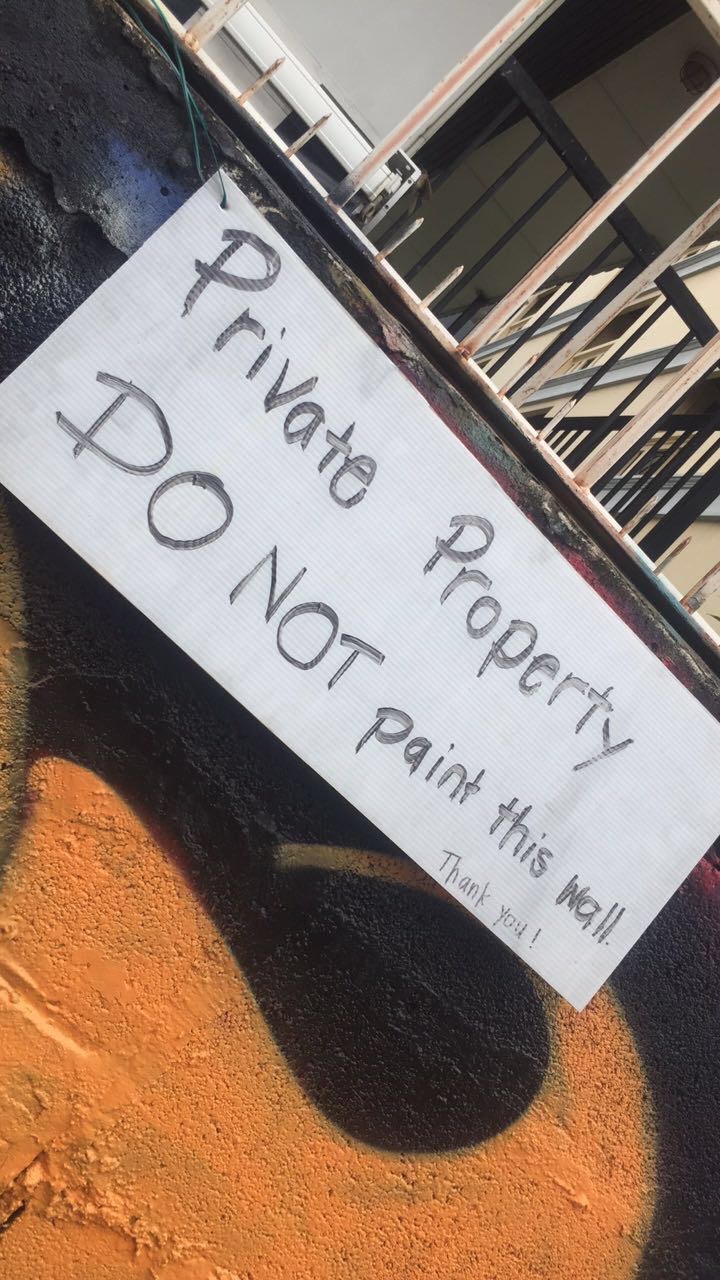 Private Property
DO NOT paint this wall.
Thank you!